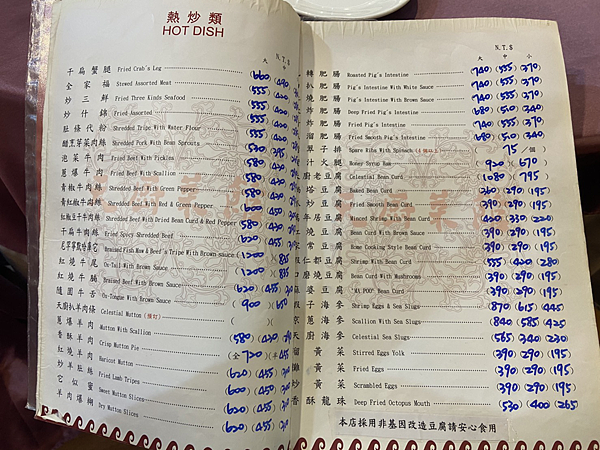 熱炒類
HOT DISH
N.T.$
大 中
千扁蟹腿 Fried Crab's Leg (660) (490)
全家福 Stewed Assorted Meat (555) (420)
炒三鮮 Fried Three Kinds Seafood (555) (420)
炒什錦 Fried Assorted (555) (420)
Shredded Tripe With Water Flour (555)
Shredded Pork With Bean Sprouts (530) (395)
泡菜牛肉 Fried Beef With Pickles (580)
蔥爆牛肉 Fried Beef With Scallion (580)
青椒牛肉絲 Shredded Beef With Green Pepper (580)
青紅椒牛肉絲 Shredded Beef With Red & Green Pepper (580)
Shredded Beef With Dried Bean Curd & Red Pepper (580)
干扁牛肉絲 Fried Spicy Shredded Beef (620)
Braised Fish Maw & Beef's Tripe With Brown sauce (1200) (835)
紅燒牛尾 Ox-Tail With Brown Sauce (1200) (835)
紅燒牛腩 Braised Beef With Brown Sauce (620) (455)
隨園牛舌 Ox-Tongue With Brown Sauce (900) (650)
天廚扒羊肉條 Celestial Mutton (預訂)
蔥爆羊肉 Mutton With Scallion (580) (430)
香酥羊肉 Crisp Mutton Pie (全720)
紅燒羊肉 Haricot Mutton (620) (455)
炒羊肚絲 Fried Lamb Tripes (600) (445)
它似蜜 Sweet Mutton Slices (620) (455)
羊肉爆糊 Dry Mutton Slices (620) (455)
N.T.$
大 中 小
辣肥腸 Roasted Pig's Intestine (740) (555) (370)
扒肥腸 Pig's Intestine With White Sauce (740) (555) (370)
燒肥腸 Pig's Intestine With Brown Sauce (740) (555) (370)
炸肥腸 Deep Fried Pig's Intestine (680) (510) (340)
炒肥腸 Fried Pig's Intestine (740) (555) (370)
溜肥腸 Fried Smooth Pig's Intestine (680) (510) (340)
翠子排 Spare Ribs With Spinach 75 /個
汁火腿 Honey Syrup Ham (920) (670)
廚老豆腐 Celestial Bean Curd (1080) (795)
塔豆腐 Baked Bean Curd (360) (290) (195)
炒豆腐 Fried Smooth Bean Curd (390) (290) (195)
年居豆腐 Minced Shrimp With Bean Curd (440) (330) (220)
燒豆腐 Bean Curd With Brown Sauce (390) (290) (195)
常豆腐 Home Cooking Style Bean Curd (390) (290) (195)
仁都豆腐 Shrimp With Bean Curd (555) (420) (280)
磨燒豆腐 Bean Curd With Mushrooms (390) (290) (195)
婆豆腐 "MA POO" Bean Curd (390) (290) (195)
子海參 Shrimp Eggs & Sea Slugs (870) (615) (445)
蔥海參 Scallion With Sea Slugs (840) (585) (425)
廚海參 Celestial Sea Slugs (565) (340) (230)
溜黃菜 Stirred Eggs Yolk (390) (290) (195)
攤黃菜 Fried Eggs (390) (290) (195)
炒黃菜 Scrambled Eggs (390) (290) (195)
香酥龍珠 Deep Fried Octopus Mouth (530) (400) (265)
本店採用非基因改造豆腐請安心食用